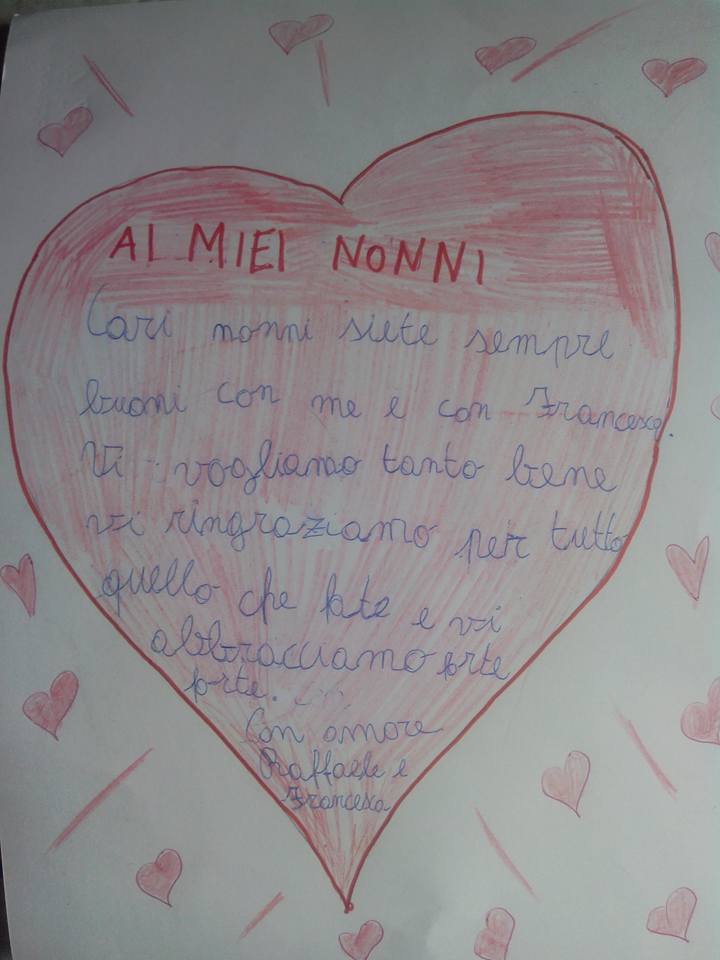 AI MIEI NONNI
Cari nonni siete sempre
buoni con me e con Francesca.
Vi vogliamo tanto bene
vi ringraziamo per tutto
quello che fate e vi
abbracciamo forte
forte.
Con amore
Raffaele e
Francesca